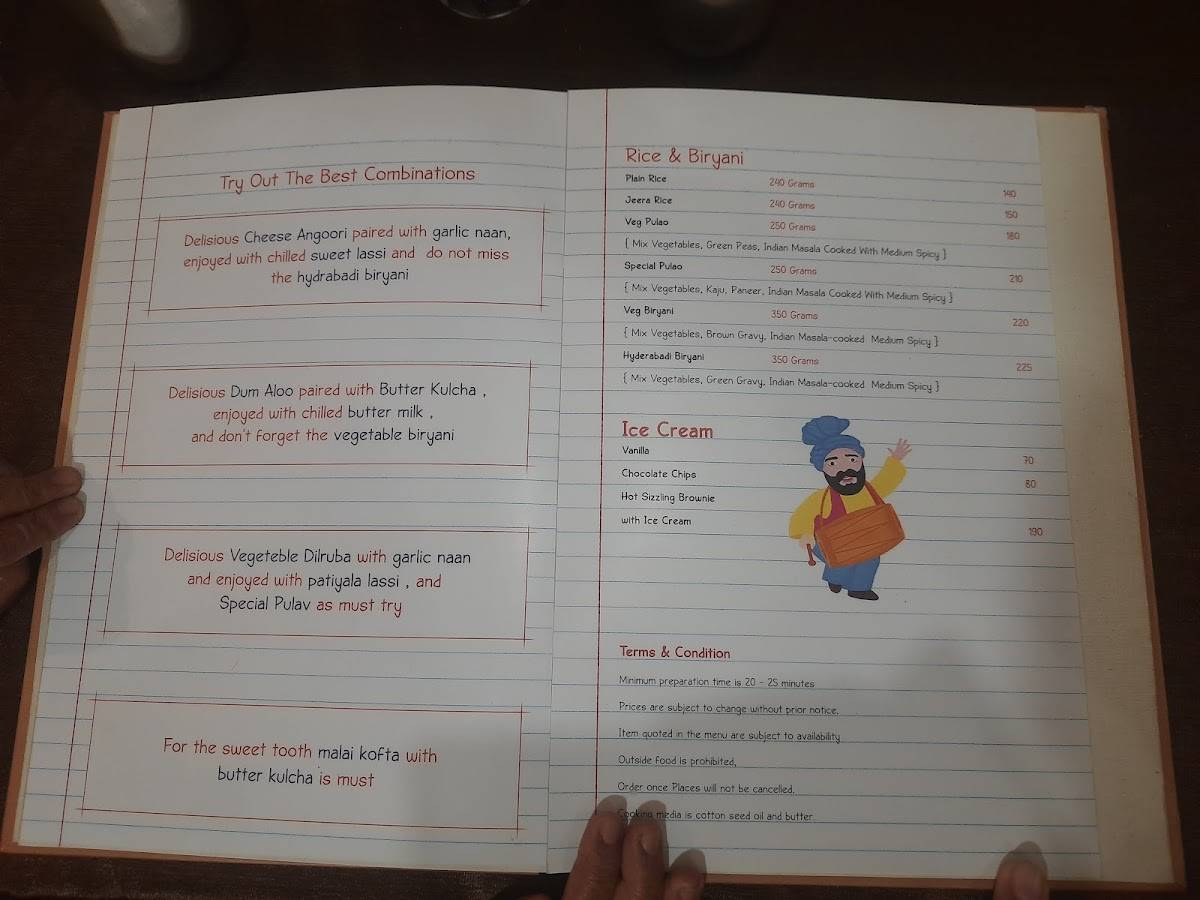 Try Out The Best Combinations
Delisious Cheese Angoori paired with garlic naan,
enjoyed with chilled sweet lassi and do not miss
the hydrabadi biryani
Delisious Dum Aloo paired with Butter Kulcha ,
enjoyed with chilled butter milk ,
and don't forget the vegetable biryani
Delisious Vegeteble Dilruba with garlic naan
and enjoyed with patiyala lassi , and
Special Pulav as must try
For the sweet tooth malai kofta with
butter kulcha is must
Rice & Biryani
Plain Rice 240 Grams 140
Jeera Rice 240 Grams 150
Veg Pulao 250 Grams 180
{ Mix Vegetables, Green Peas, Indian Masala Cooked With Medium Spicy }
Special Pulao 250 Grams 210
{ Mix Vegetables, Kaju, Paneer, Indian Masala Cooked With Medium Spicy }
Veg Biryani 350 Grams 220
{ Mix Vegetables, Brown Gravy, Indian Masala-cooked Medium Spicy }
Hyderabadi Biryani 350 Grams 225
{ Mix Vegetables, Green Gravy, Indian Masala-cooked Medium Spicy }
Ice Cream
Vanilla 70
Chocolate Chips 80
Hot Sizzling Brownie
with Ice Cream 190
Terms & Condition
Minimum preparation time is 20 - 25 minutes
Prices are subject to change without prior notice.
Item quoted in the menu are subject to availability
Outside food is prohibited,
Order once Places will not be cancelled.
Cooking media is cotton seed oil and butter.